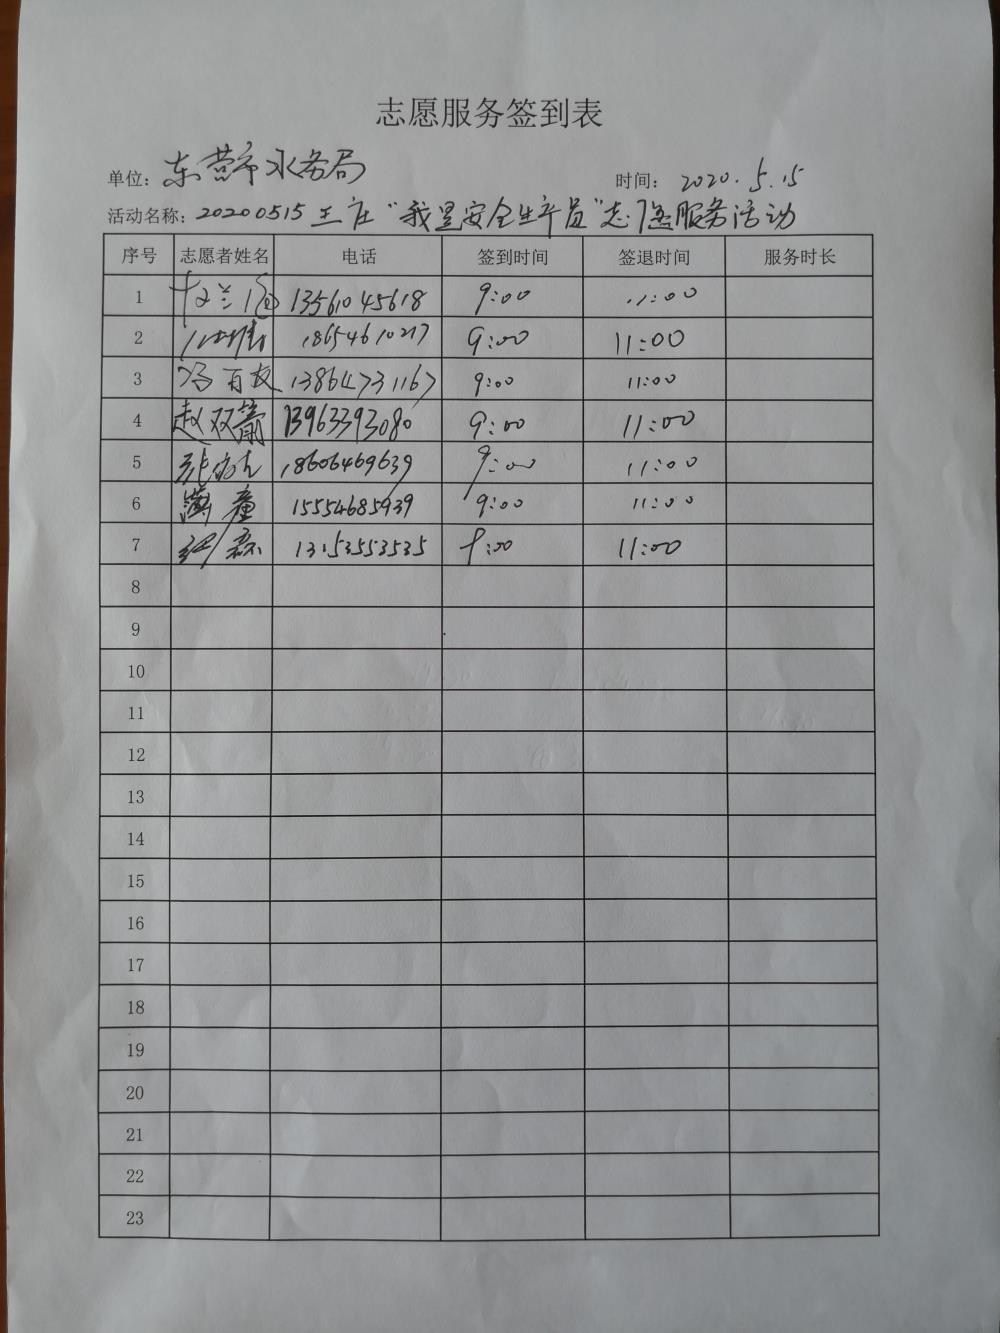 志愿服务签到表
单位：东营市水务局 时间：2020.5.15
活动名称：20200515王庄“我是安全生产员”志愿服务活动
序号 志愿者姓名 电话 签到时间 签退时间 服务时长
1 13561045618 9:00 11:00
2 18654610217 9:00 11:00
3 冯百友 13864731167 9:00 11:00
4 赵双 13963393080 9:00 11:00
5 张 18606469639 9:00 11:00
6 15554685939 9:00 11:00
7 13153553535 9:00 11:00
8
9
10
11
12
13
14
15
16
17
18
19
20
21
22
23